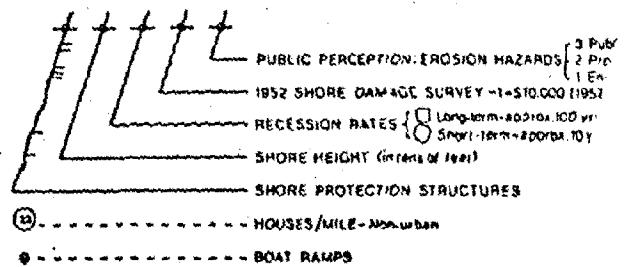 3 Publ
PUBLIC PERCEPTION: EROSION HAZARDS 2 Pro
1 En
1952 SHORE DAMAGE SURVEY -1=$10,000 (1952
RECESSION RATES Long-term-approx. 100 yr
Short-term-approx. 10 y
SHORE HEIGHT (in tens of feet)
SHORE PROTECTION STRUCTURES
HOUSES/MILE - Non-urban
BOAT RAMPS